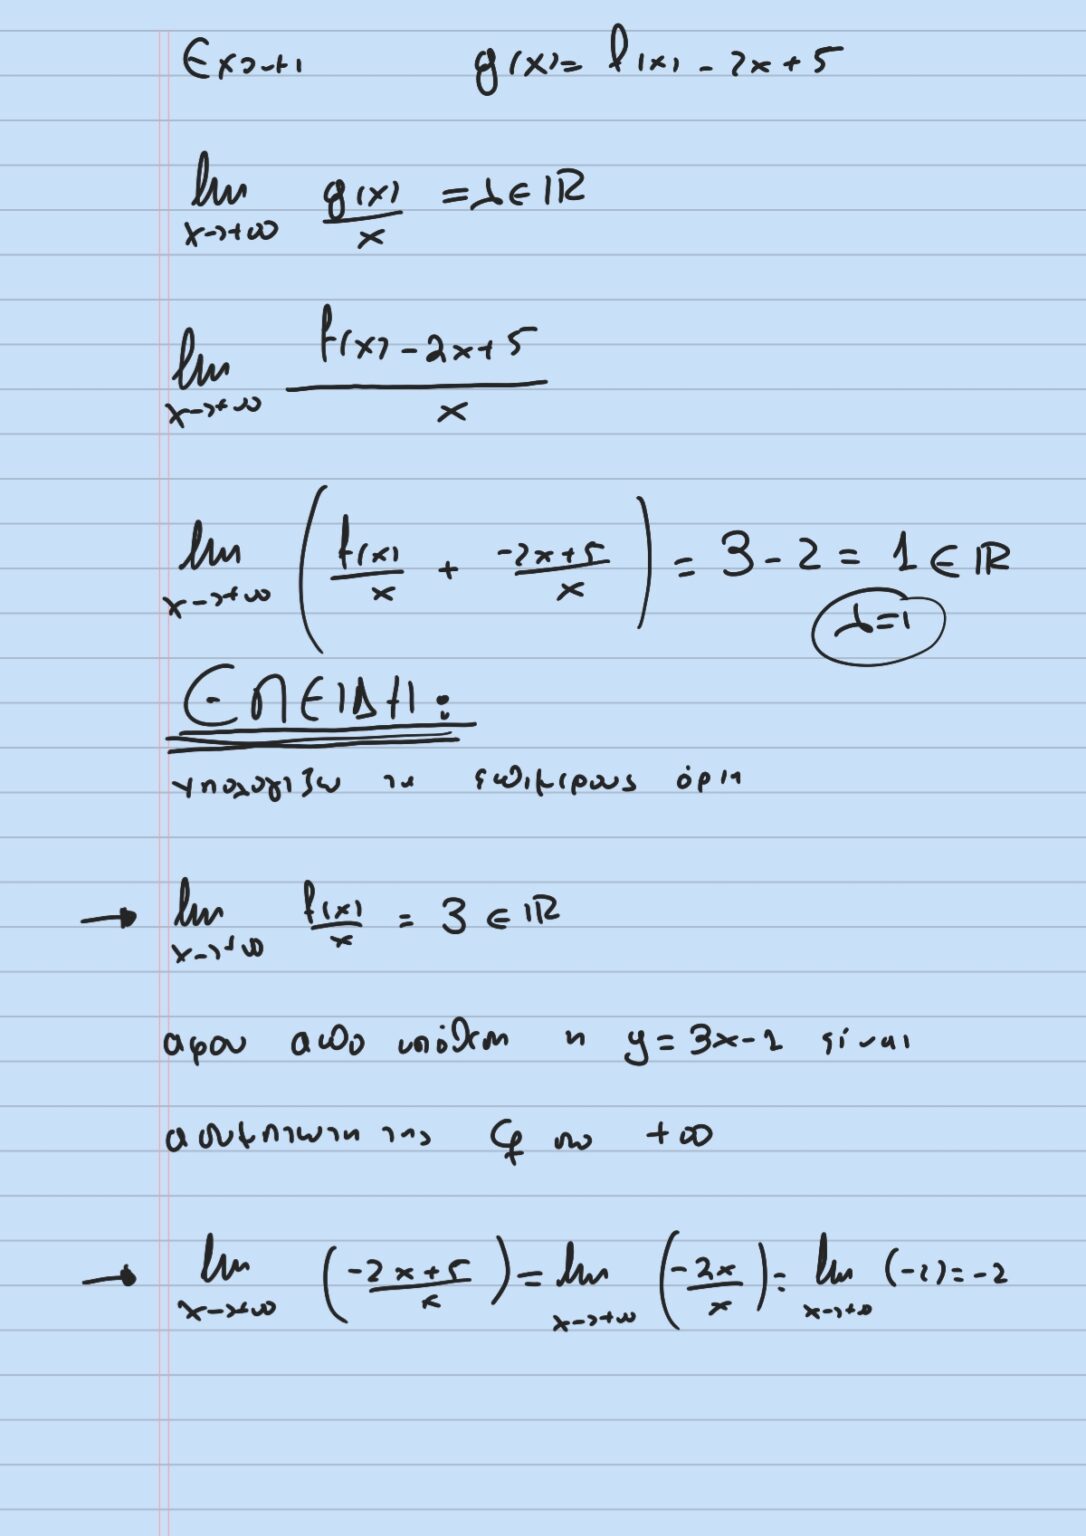 Εχουμε g(x) = f(x) - 2x + 5
lim x→+∞ g(x)/x = λ ∈ ℝ
lim x→+∞ f(x) - 2x + 5 / x
lim x→+∞ ( f(x)/x + -2x+5/x ) = 3 - 2 = 1 ∈ ℝ
λ=1
ΕΠΕΙΔΗ:
υπολογιζω τα επιμερους όρια
→ lim x→+∞ f(x)/x = 3 ∈ ℝ
αφου απο υπόθεση η y = 3x - 2 είναι
ασυμπτωτη της Cf στο +∞
→ lim x→+∞ ( -2x+5/x ) = lim x→+∞ ( -2x/x ) = lim x→+∞ (-2) = -2